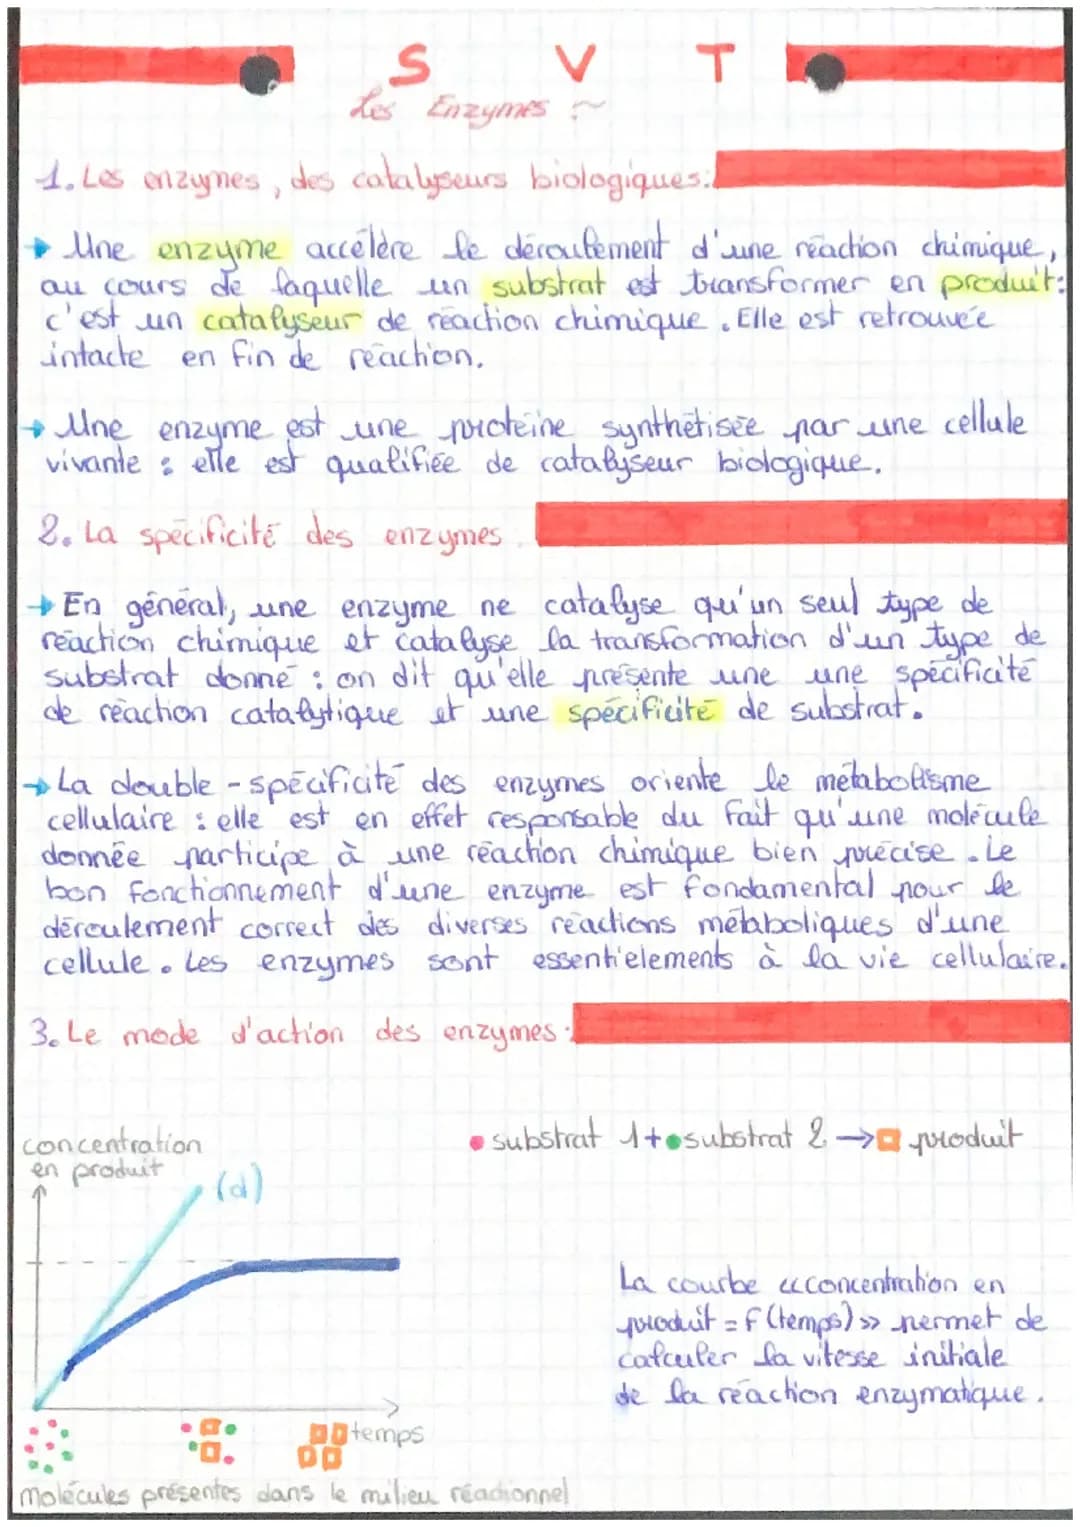 S V T
Les Enzymes ~
1. Les enzymes, des catalyseurs biologiques:
→ Une enzyme accélère le déroulement d'une réaction chimique,
au cours de laquelle un substrat est transformer en produit:
c'est un catalyseur de réaction chimique. Elle est retrouvée
intacte en fin de réaction.
→ Une enzyme est une protéine synthétisée par une cellule
vivante : elle est qualifiée de catalyseur biologique.
2. La spécificité des enzymes.
→ En général, une enzyme ne catalyse qu'un seul type de
réaction chimique et catalyse la transformation d'un type de
substrat donné : on dit qu'elle présente une une spécificité
de réaction catalytique et une spécificité de substrat.
→ La double - spécificité des enzymes oriente le métabolisme
cellulaire : elle est en effet responsable du fait qu'une molécule
donnée participe à une réaction chimique bien précise. Le
bon fonctionnement d'une enzyme est fondamental pour le
déroulement correct des diverses réactions métaboliques d'une
cellule. Les enzymes sont essentielements à la vie cellulaire.
3. Le mode d'action des enzymes:
substrat 1 + substrat 2 → produit
concentration
en produit
(d)
La courbe «concentration en
produit = f (temps) » permet de
calculer la vitesse initiale
de la réaction enzymatique.
temps
molécules présentes dans le milieu réactionnel